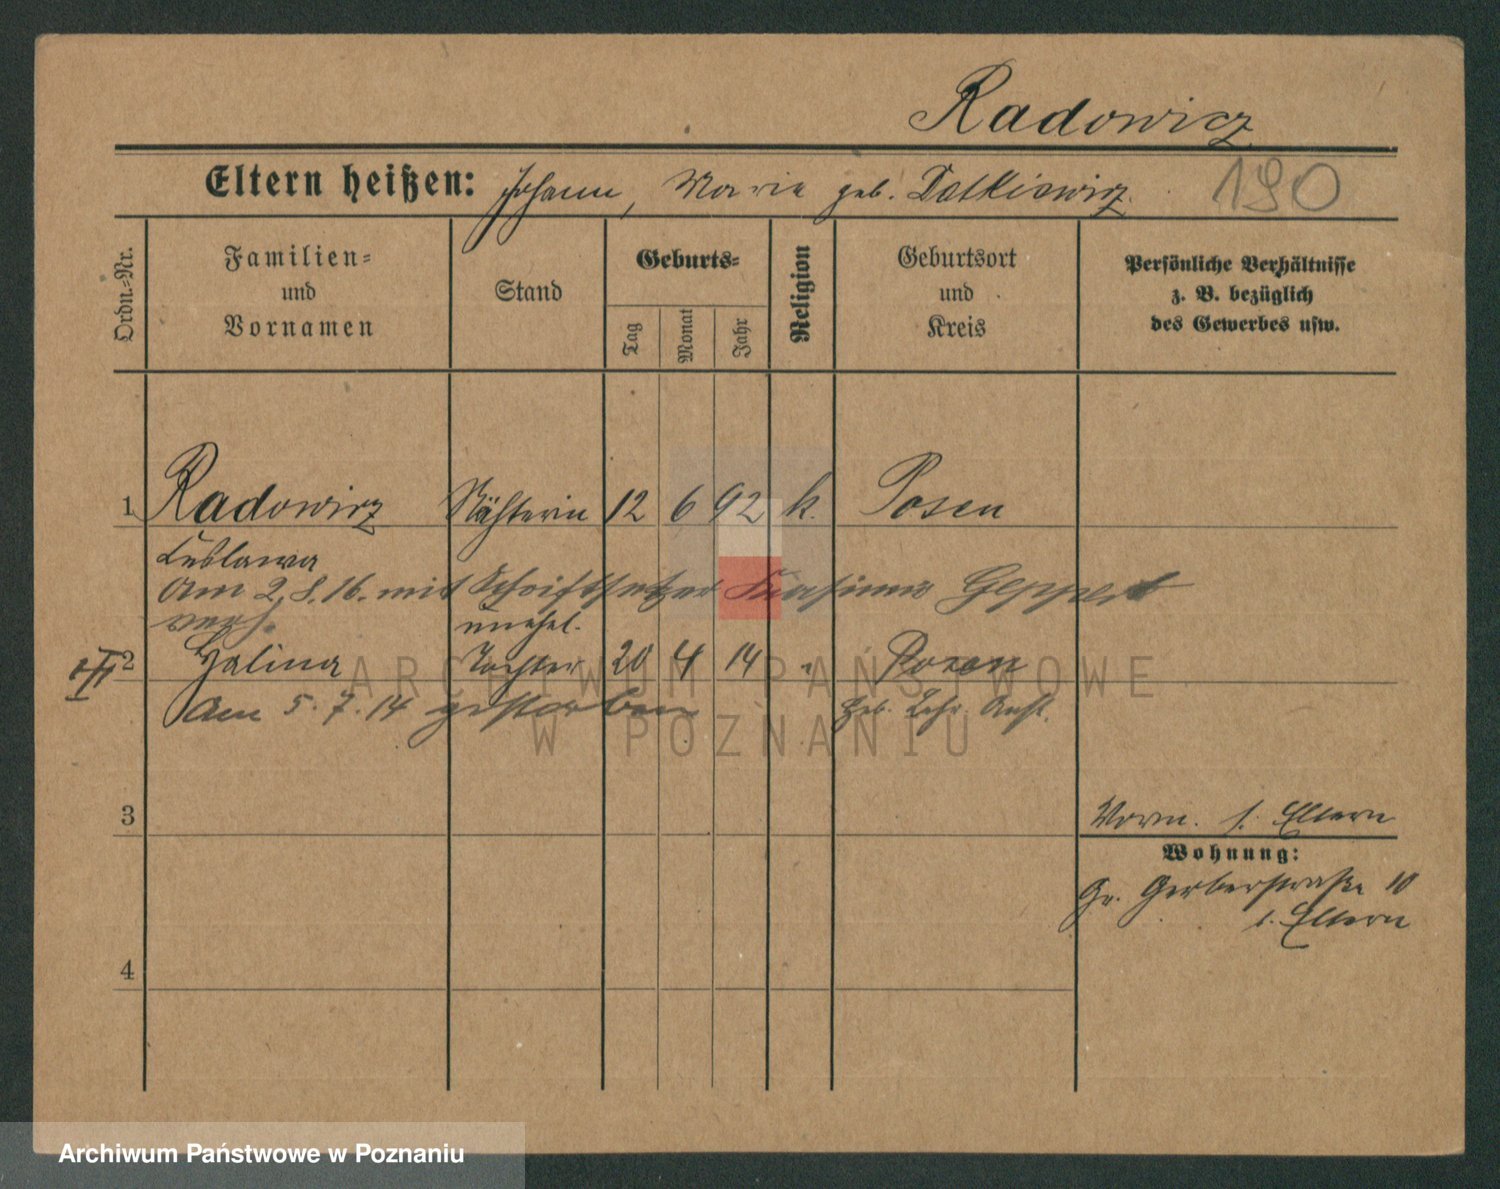 Radowicz
Eltern heißen: Johann, Maria geb. Datkiewicz.
190
Ordn.=Nr.
Familien=
und
Vornamen
Stand
Geburts=
Tag
Monat
Jahr
Religion
Geburtsort
und
Kreis
Persönliche Verhältnisse
z. B. bezüglich
des Gewerbes usw.
1 Radowicz Nähterin 12 6 92 k. Posen
Lublawa
Am 2.8.16. mit Schriftsetzer Geppert
verh.
unehel.
2 Halina Tochter 20 4 14 " Posen
Am 5.7.14 gestorben
Heb. Lehr. Anst.
3
Vorm. s. Eltern
Wohnung:
Gr. Gerberstraße 10
s. Eltern
4
ARCHIWUM PAŃSTWOWE
W POZNANIU
Archiwum Państwowe w Poznaniu